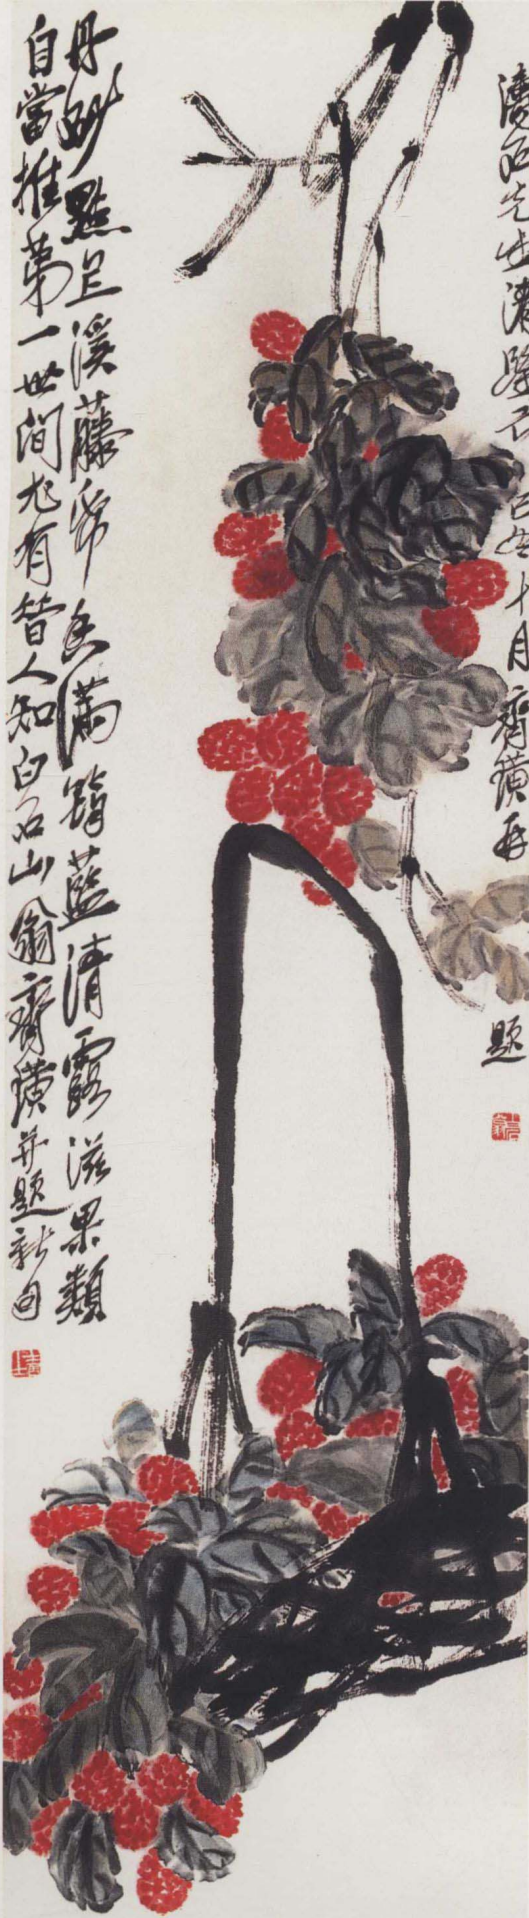 石先生清鑒十月齊璜再
題
丹砂點足溪藤帋香滿筠藍清露滋果類
自當推第一世間尤有昔人知白石山翁齊璜并題新句